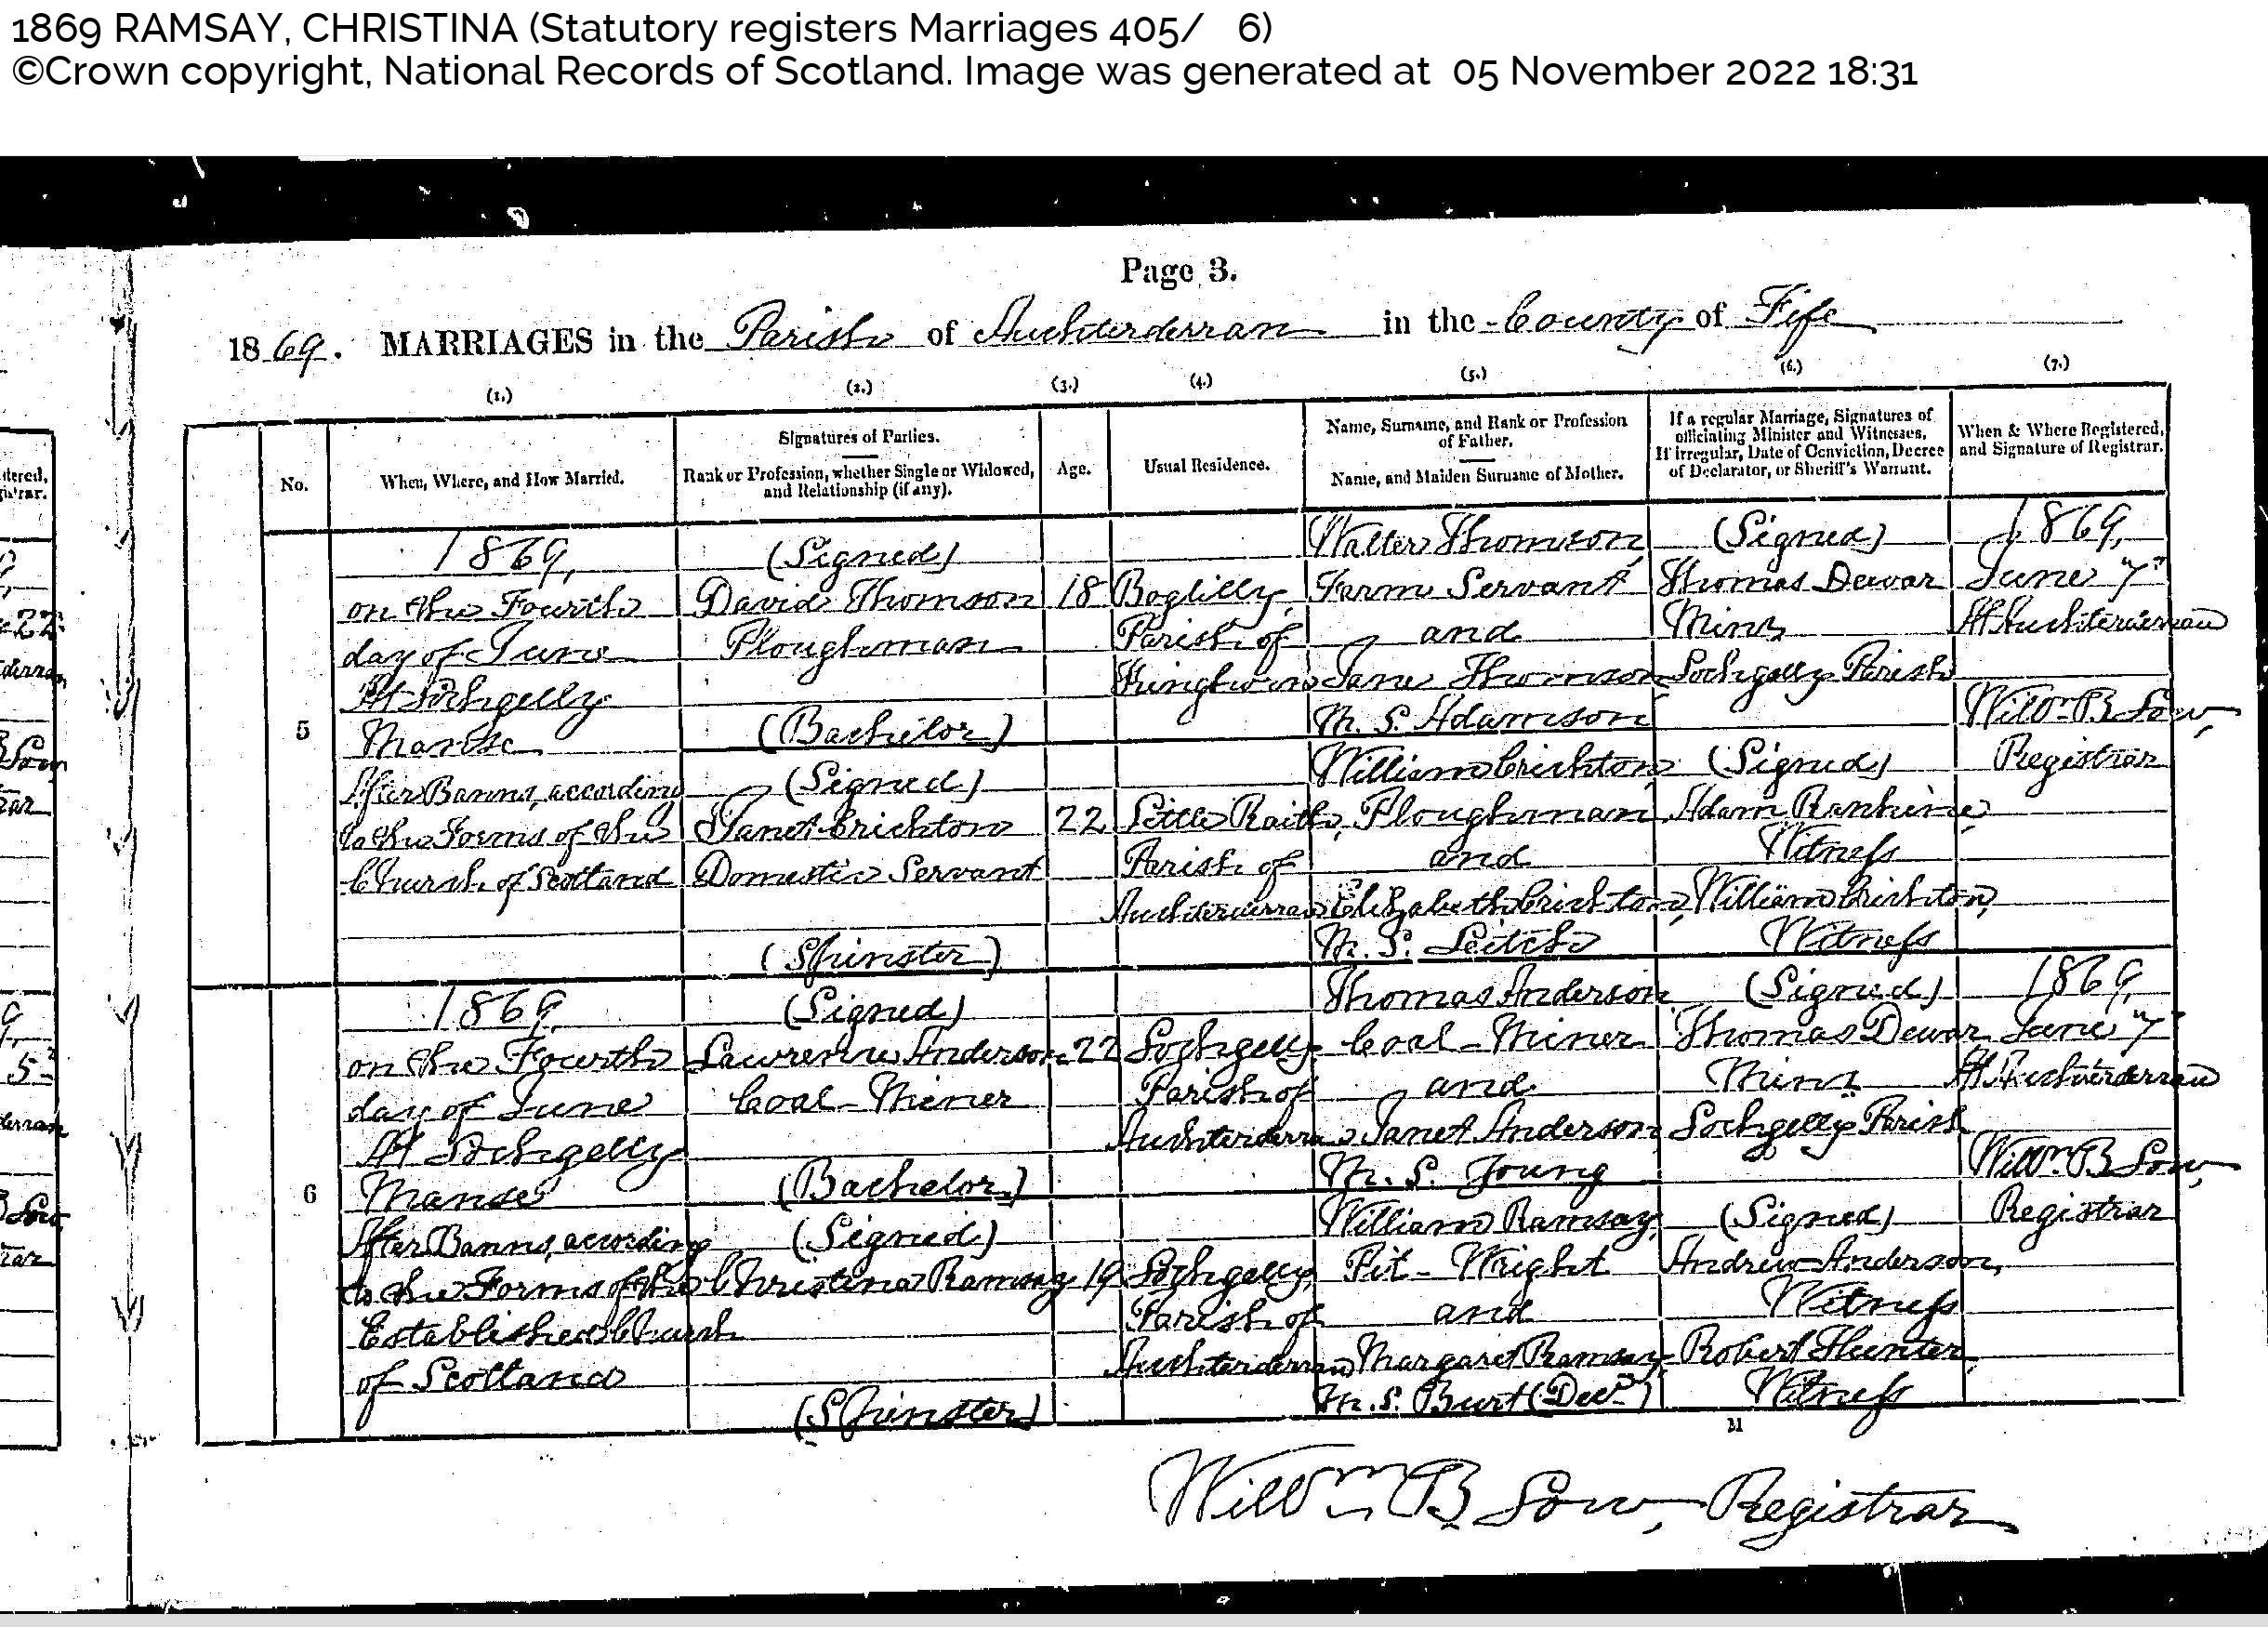 1869 RAMSAY, CHRISTINA (Statutory registers Marriages 405/ 6)
©Crown copyright, National Records of Scotland. Image was generated at 05 November 2022 18:31
Page 3.
1869. MARRIAGES in the Parish of Auchterderran in the County of Fife
(1.) (2.) (3.) (4.) (5.) (6.) (7.)
No.
When, Where, and How Married.
Signatures of Parties.
Rank or Profession, whether Single or Widowed,
and Relationship (if any).
Age.
Usual Residence.
Name, Surname, and Rank or Profession
of Father.
Name, and Maiden Surname of Mother.
If a regular Marriage, Signatures of
officiating Minister and Witnesses.
If irregular, Date of Conviction, Decree
of Declarator, or Sheriff's Warrant.
When & Where Registered,
and Signature of Registrar.
5
1869,
on the Fourth
day of June
At Lochgelly
Manse
After Banns, according
to the Forms of the
Church of Scotland
(Signed)
David Thomson
Ploughman
(Bachelor)
(Signed)
Janet Crichton
Domestic Servant
(Spinster)
18
22
Boglilly,
Parish of
Kinghorn
Little Raith,
Parish of
Auchterderran
Walter Thomson,
Farm Servant
and
Jane Thomson
M. S. Adamson
William Crichton,
Ploughman,
and
Elizabeth Crichton,
M. S. Leitch
(Signed)
Thomas Dewar
Minr
Lochgelly Parish
(Signed)
Adam Rankine,
Witness
William Crichton,
Witness
1869,
June 7th
At Auchterderran
Willm B Low,
Registrar
6
1869,
on the Fourth
day of June
At Lochgelly
Manse
After Banns, according
to the Forms of the
Established Church
of Scotland
(Signed)
Lawrence Anderson
Coal-Miner
(Bachelor)
(Signed)
Christina Ramsay
(Spinster)
22
19
Lochgelly
Parish of
Auchterderran
Lochgelly,
Parish of
Auchterderran
Thomas Anderson
Coal-Miner
and
Janet Anderson,
M. S. Young
William Ramsay,
Pit-Wright
and
Margaret Ramsay,
M. S. Burt (Decd)
(Signed)
Thomas Dewar
Minr
Lochgelly Parish
(Signed)
Andrew Anderson,
Witness
Robert Hunter,
Witness
1869,
June 7th
At Auchterderran
Willm B Low,
Registrar
Willm B Low, Registrar